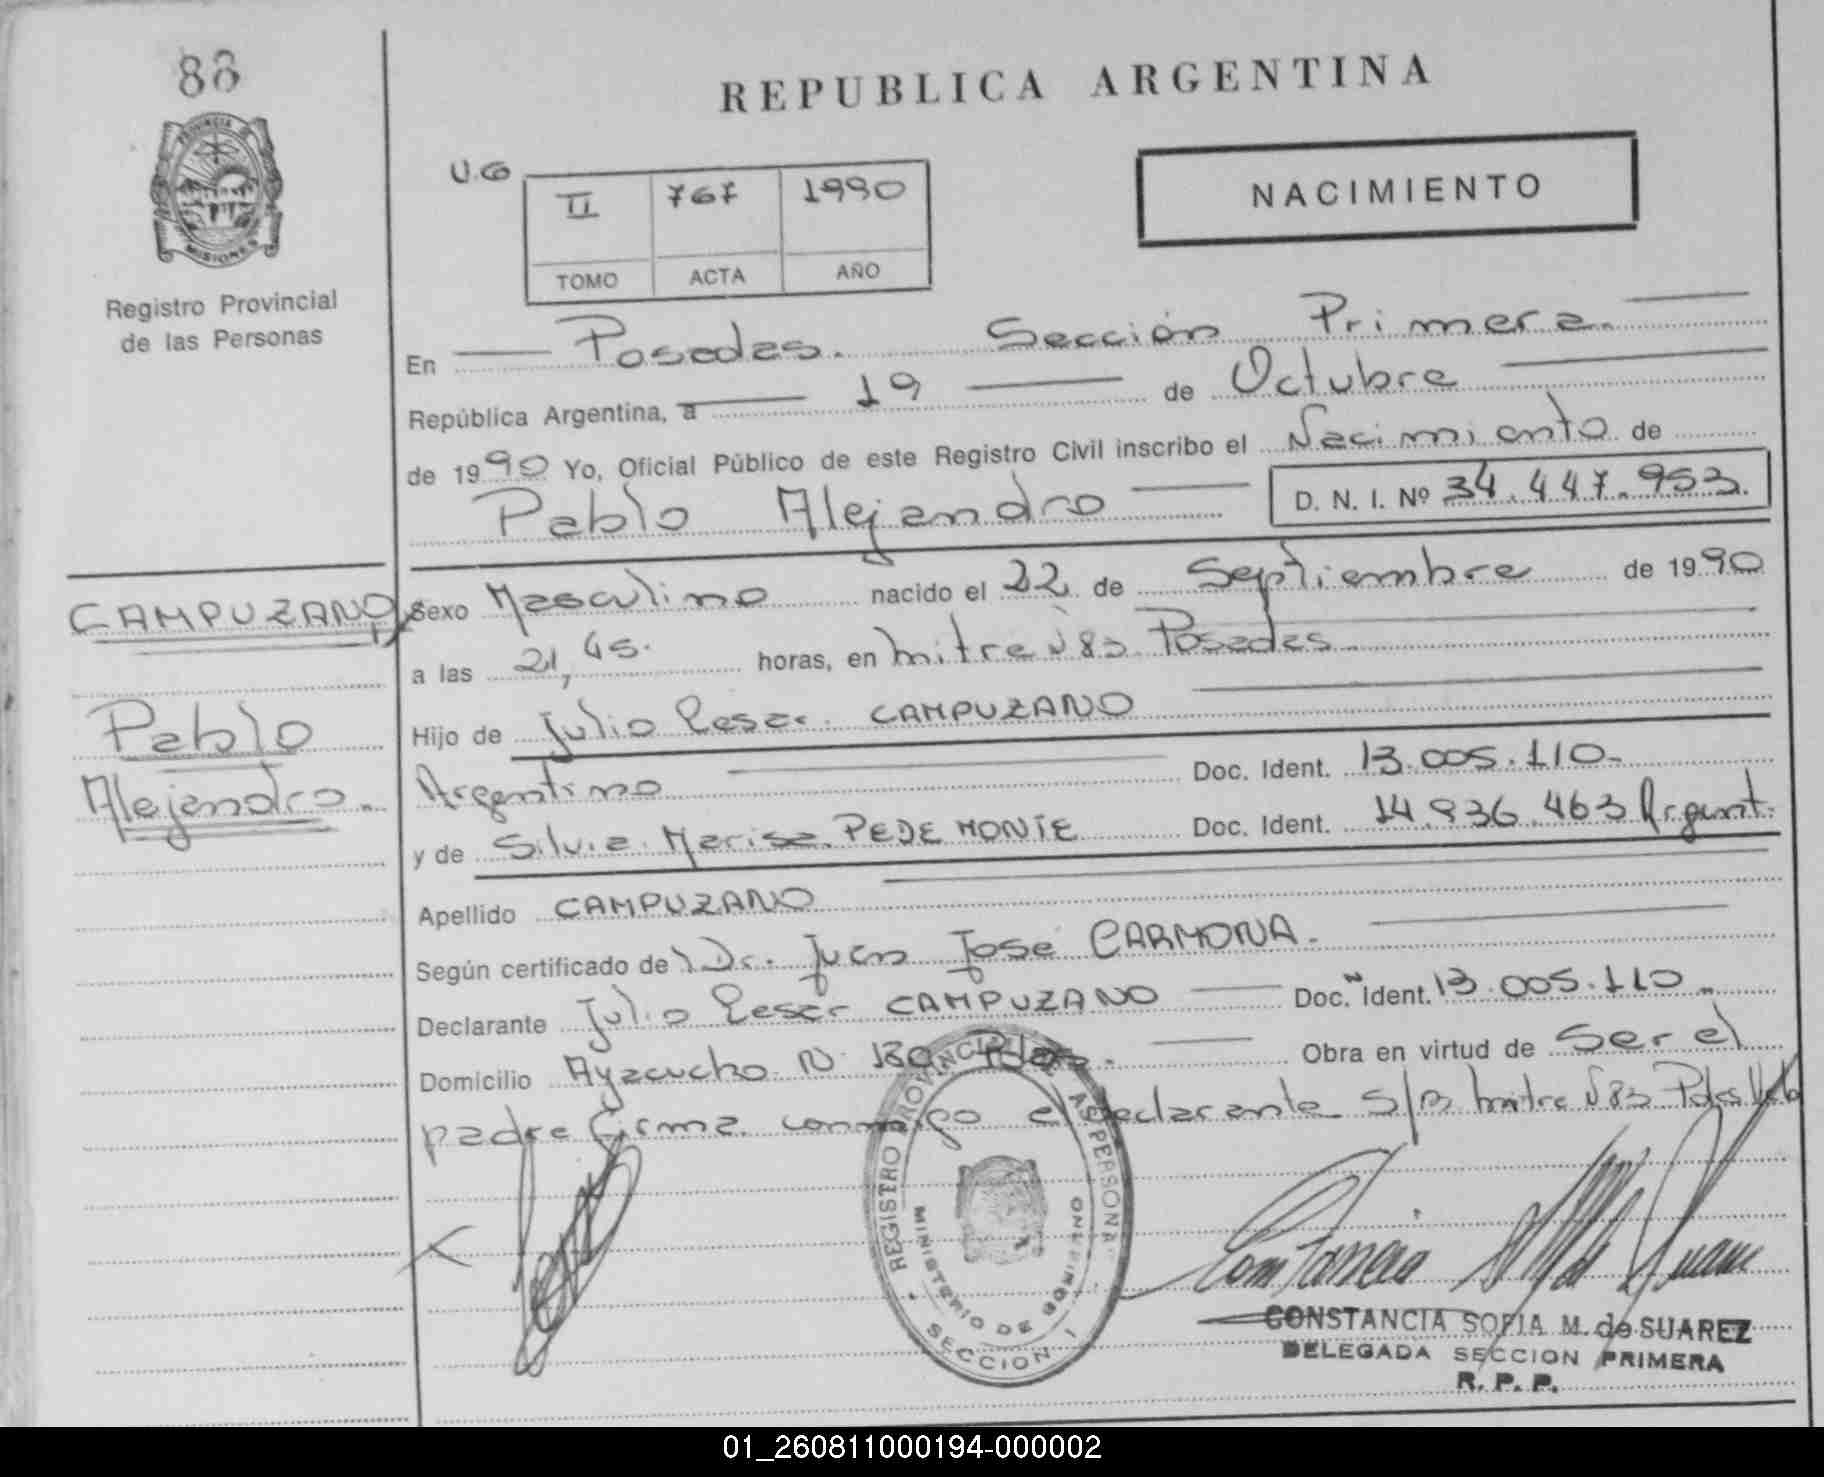 88
REPUBLICA ARGENTINA
PROVINCIA DE
MISIONES
Registro Provincial
de las Personas
II 767 1990
TOMO ACTA AÑO
NACIMIENTO
En Posadas. Sección Primera.
República Argentina, a 19 de Octubre
de 1990 Yo, Oficial Público de este Registro Civil inscribo el Nacimiento de
Pablo Alejandro D. N. I. Nº 34.447.953.
CAMPUZANO,
Pablo
Alejandro.
Sexo Masculino nacido el 22 de Septiembre de 1990
a las 21,45. horas, en mitre N 83 Posadas
Hijo de Julio Cesar CAMPUZANO
Argentino Doc. Ident. 13.005.110-
y de Silvia Marisa PEDEMONTE Doc. Ident. 14.936.463 Argent.
Apellido CAMPUZANO
Según certificado del Dr. Juan José CARMONA.
Declarante Julio Cesar CAMPUZANO Doc. Ident. 13.005.110
Domicilio Ayacucho N 130 Pdas. Obra en virtud de Ser el
padre firma conmigo el declarante S/B mitre N 83 Pdas
REGISTRO PROVINCIAL DE LAS PERSONAS
MINISTERIO DE GOBIERNO
SECCION 1
CONSTANCIA SOFIA M. de SUAREZ
DELEGADA SECCION PRIMERA
R. P. P.
01_260811000194-000002